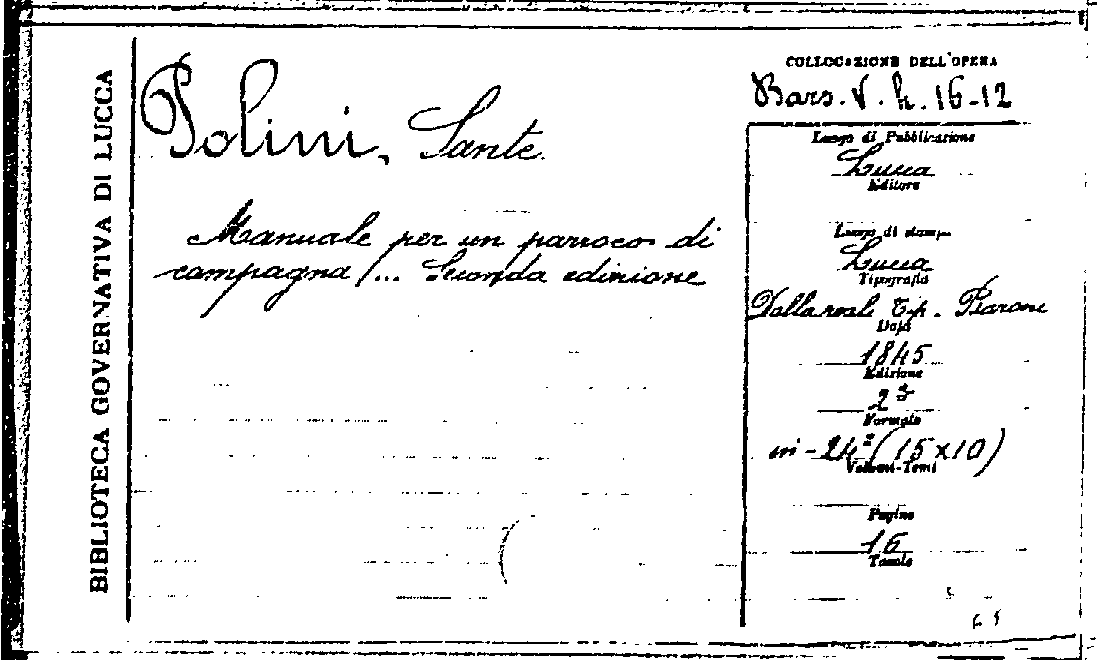 BIBLIOTECA GOVERNATIVA DI LUCCA
Polini, Sante.
Manuale per un parroco di
campagna /... Seconda edizione
COLLOCAZIONE DELL'OPERA
Bars. V. h. 16-12
Luogo di Pubblicazione
Lucca
Editore
Luogo di stampa
Lucca
Tipografia
Dalla reale Tip. Baroni
Data
1845
Edizione
2ª
Formato
in-24° (15x10)
Volumi-Tomi
Pagine
16
Tavole